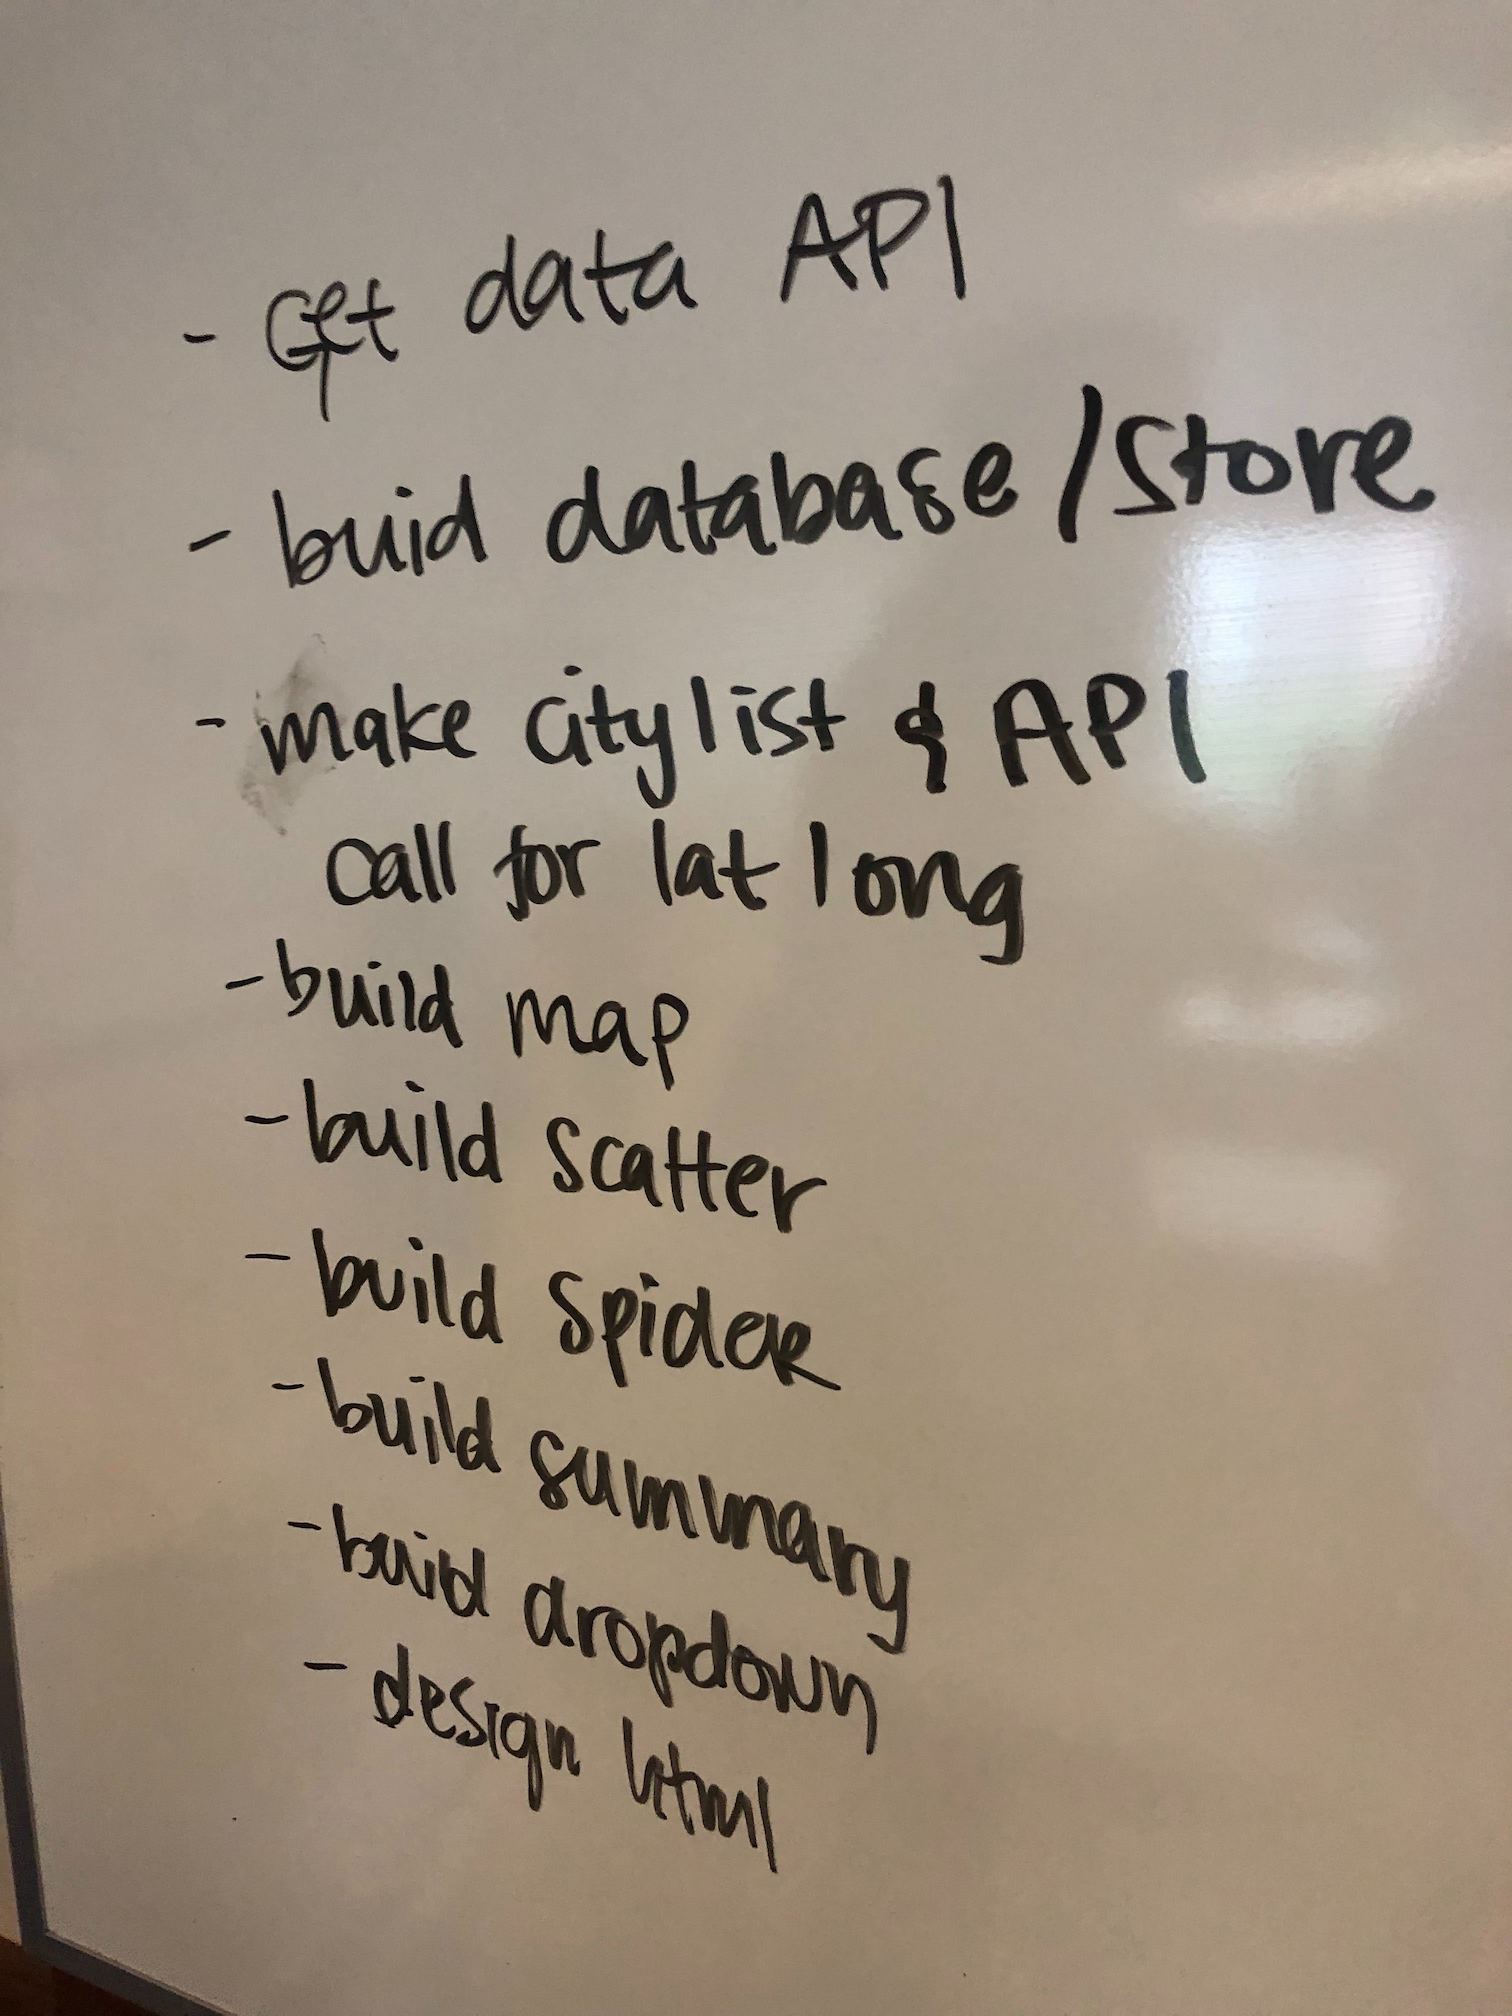 - Get data API
- buid database/store
- make city list & API
call for lat long
- build map
- build scatter
- build spider
- build summary
- build dropdown
- design html